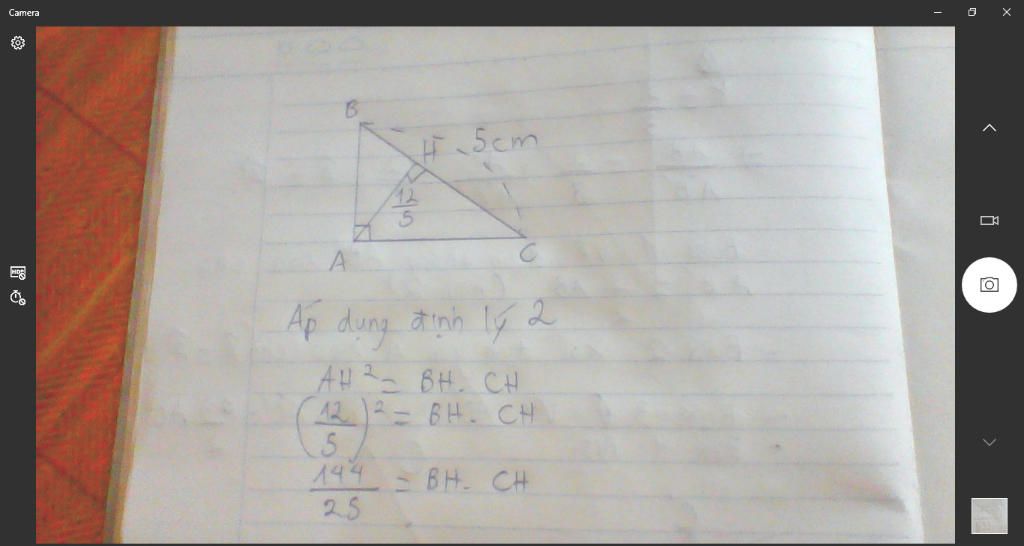 Camera
B
H 5cm
12/5
A
C
Áp dụng định lý 2
AH² = BH. CH
(12/5)² = BH. CH
144/25 = BH. CH